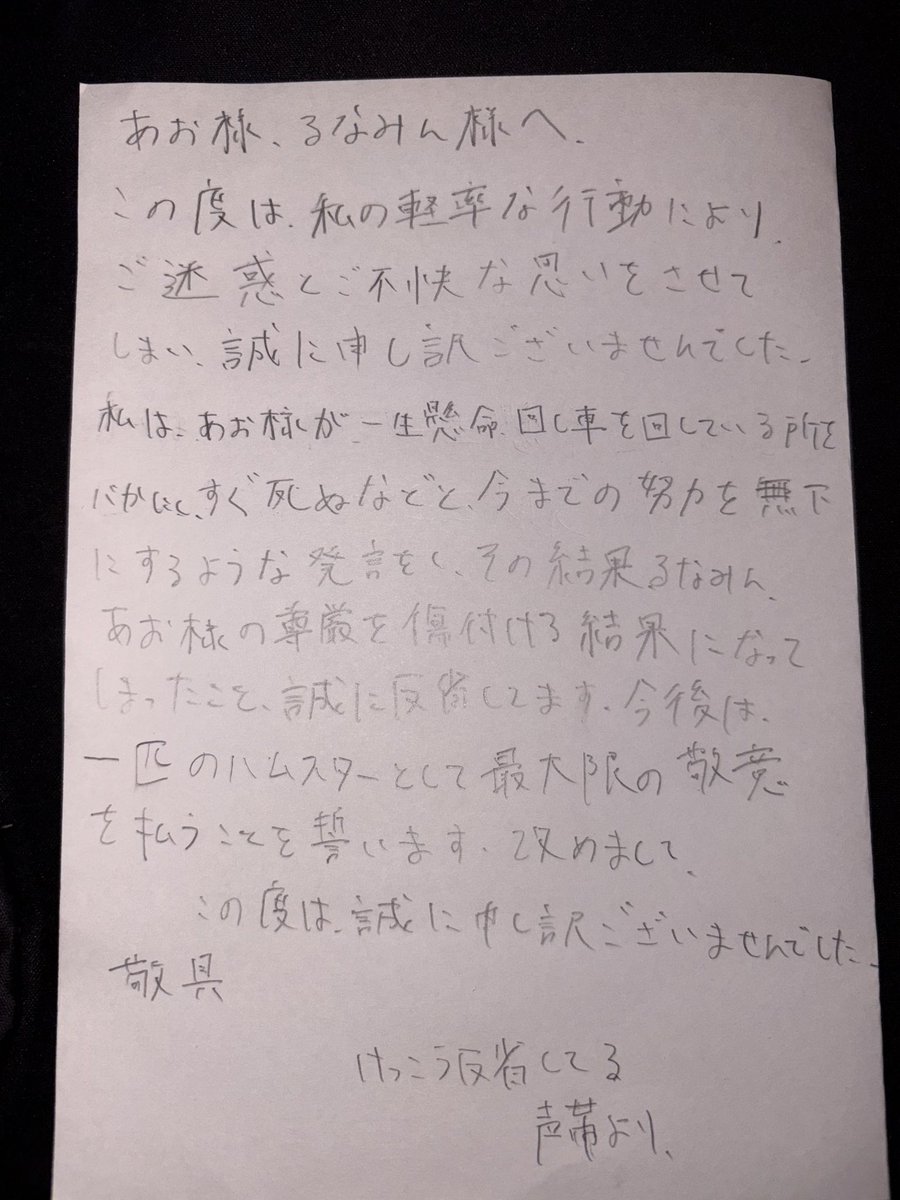 あお様、るなみん様へ.
この度は、私の軽率な行動により、
ご迷惑とご不快な思いをさせて
しまい、誠に申し訳ございませんでした。
私は、あお様が一生懸命、回し車を回している所を
バカにし、すぐ死ぬなどと、今までの努力を無下
にするような発言をし、その結果るなみん、
あお様の尊厳を傷付ける結果になって
しまったこと、誠に反省してます、今後は、
一匹のハムスターとして最大限の敬意
を払うことを誓います、改めまして、
この度は、誠に申し訳ございませんでした。
敬具
けっこう反省してる
声帯より、